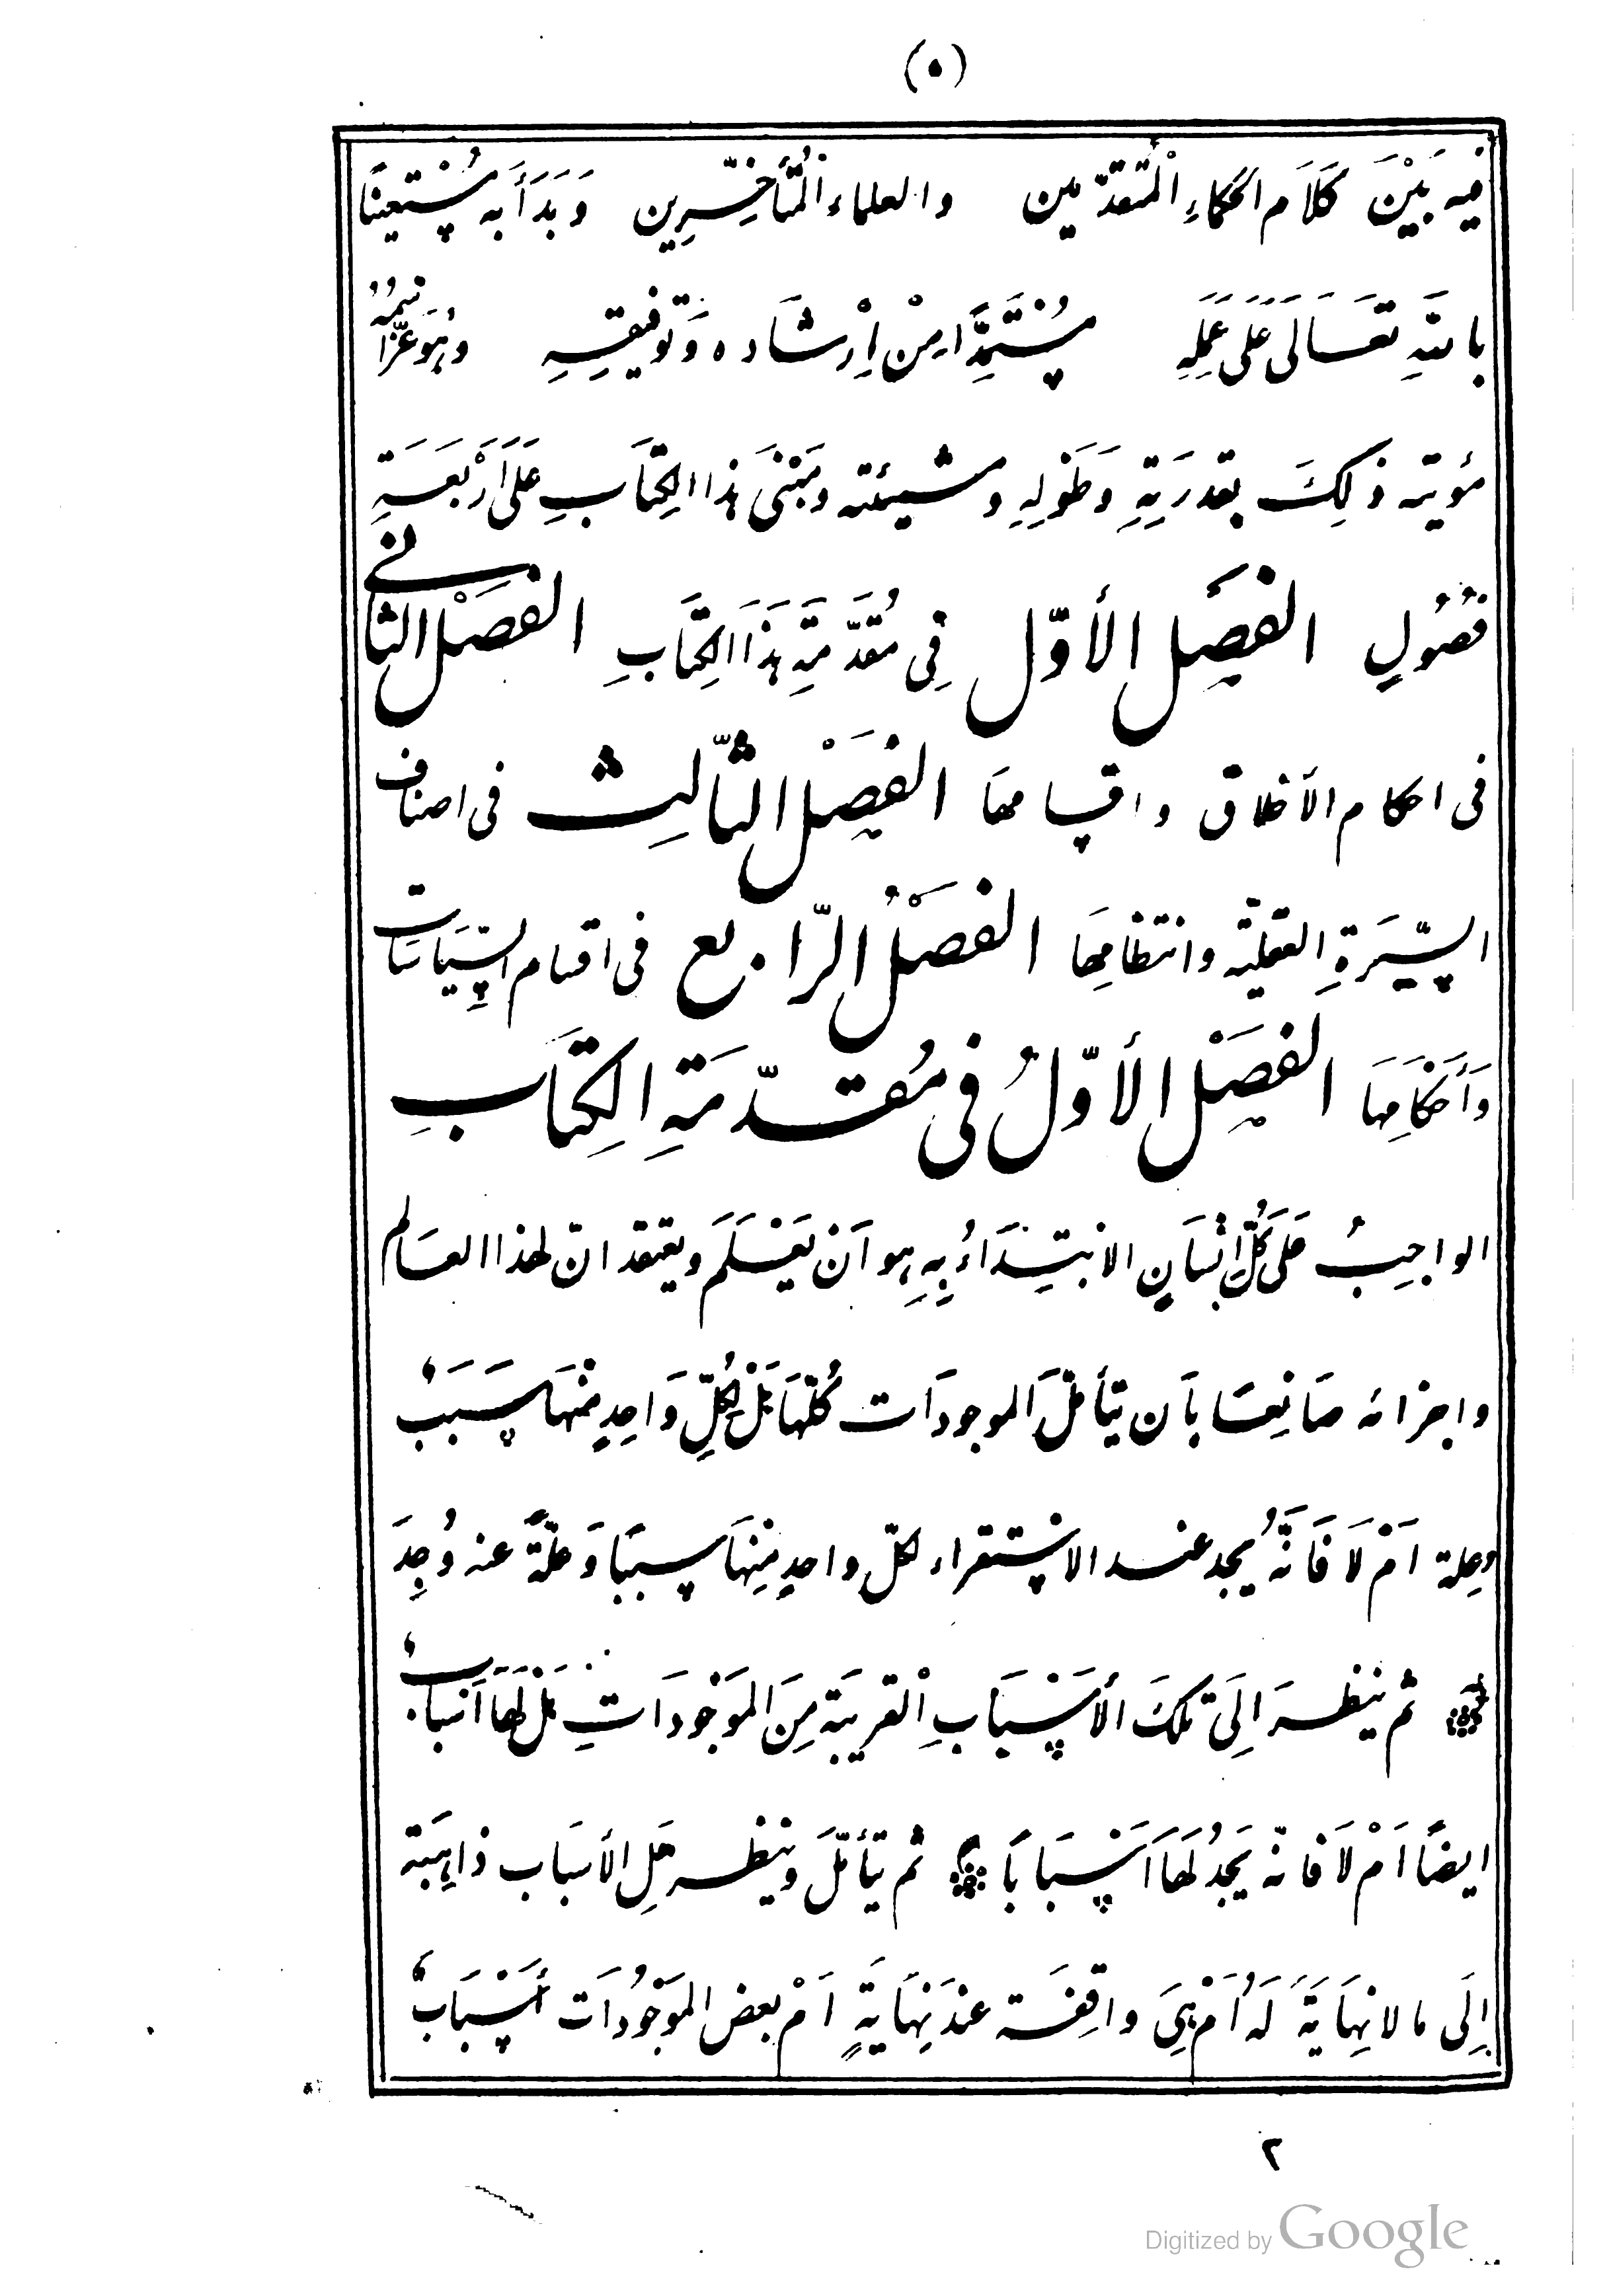 (٥)
فيه بَيْنَ كَلَام الحكماءِ الْمُتَقدّمين والعلماء الْمُتَأَخِّرِين وَبَدَأ به مُسْتَعِينًا
باللهِ تعَالَى عَلَى عَمَلِهِ مُسْتَمِدًّا مِنْ إِرْشَاده وَتَوفيقِهِ وهُوَ عَزَّ اسْمُهُ
مؤتيه ذٰلِكَ بقدرَتِهِ وَطَوْلِهِ ومشيئته ومَبْنَى هٰذا الكِتَابِ عَلَى أَرْبَعَةِ
فُصُولٍ الفصَل الأوّل فِى مُقدَّمَةِ هٰذَا الكِتَابِ الفصَلْ الثانى
فى احكام الأخلاق واقسامها الفصَلْ الثّالِث فى اصناف
السِّيرَةِ العقليّة وانتظامِهَا الفصَلْ الرّابع فى اقسام السِّيَاسَات
وَأَحْكَامِهَا الفصَلْ الأوّلُ فى مُقدّمَةِ الكِتَابِ
الواجبُ عَلى كُلِّ انْسَانٍ الابْتِدَاءُ بِهِ هو اَنْ يَعْلَمَ ويعتقد انّ لهذا العَالم
واجزائه صَانِعًا بأَن يتأمّلَ الموجودَات كُلّهَا هَلْ لِكُلِّ وَاحِدٍ مِنْهَا سَبَبٌ
وعلة اَمْ لَا فَانَّهُ يجد عند الاسْتقراء لكلّ واحدٍ مِنهَا سببًا وَعلّةً عنه وُجِدَ
ثم ينظر اِلَى تلكَ الأسْبَابِ الْقريبَة مِنَ المَوْجُودَاتِ هَلْ لَهَا اَسْبَابٌ
ايضًا اَمْ لَا فانّه يَجدُ لَهَا اَسْبَابًا ثم يتأمّلَ وينظر هَلِ الأسبَاب ذاهبَة
إِلَى مالا نِهَايَةَ لَهُ اَمْ هِىَ واقِفَة عندَ نِهَايَةٍ اَمْ بعض المَوْجُودَات أَسْبَابٌ
٢
Digitized by Google